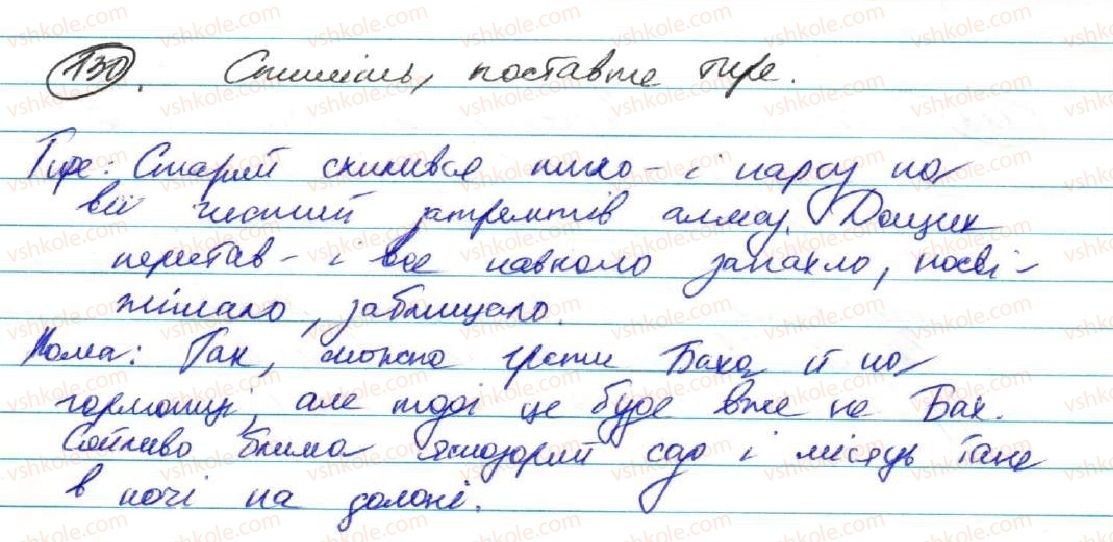 130. Спишіть, поставте тире.
Тире: Старий схилився низько - і парсу на
вії чистий затремтів алмаз. Дощик
перестав - і все навколо запахло, посві-
жішало, заблищало.
Кома: Так, можна грати Баха й на
гармониці, але тоді це буде вже не Бах.
блима ясмозорий сад і місяць тане
в ночі на долоні.